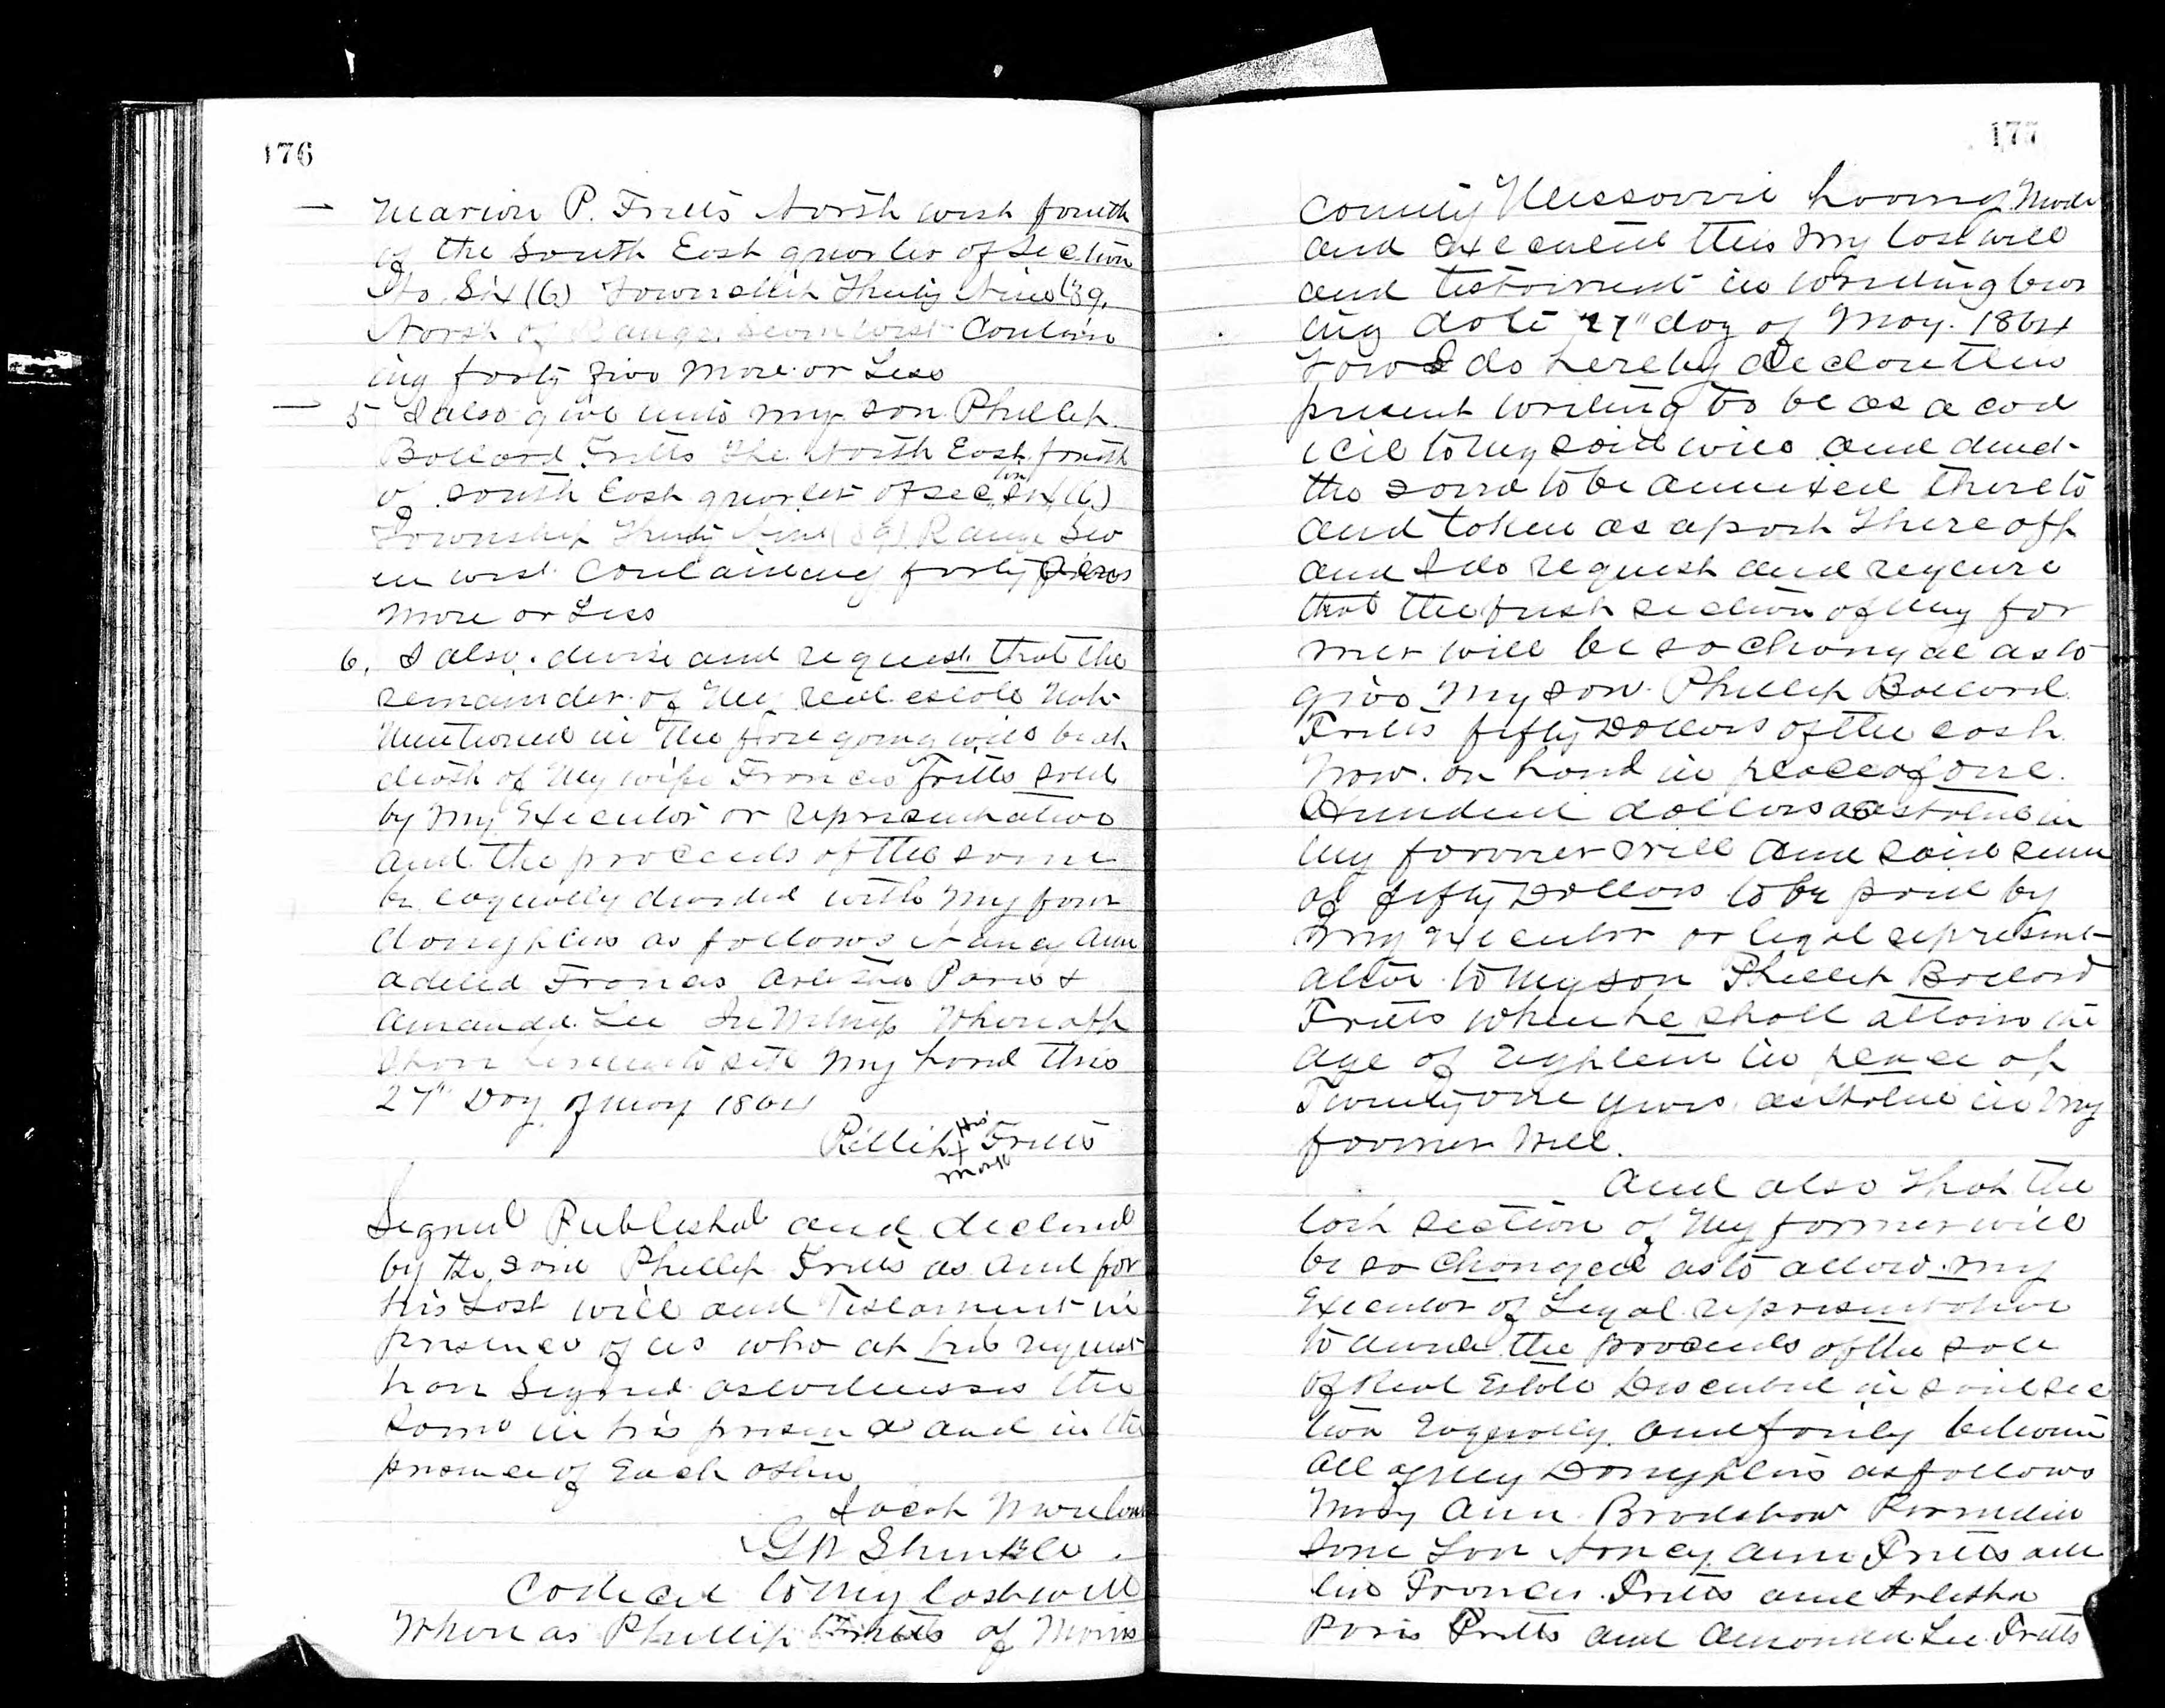 176
Marion P. Fritts North west fourth
of the South East quarter of Section
No. Six (6) Township Thirty Nine (39,
North of Range Seven West Contain
ing forty five More or Less
5 I also give unto my son Phillip
Bollard Fritts The North East fourth
of South East quarter of section Six (6)
Township Thirty Nine (39) Range Sev
en west Containing forty Acres
More or Less
6, I also devise and request that the
remainder of My real estate Not
Mentioned in The fore going will be at
death of My wife Frances Fritts sold
by My Executor or representative
and the proceeds of the same
be equally divided with My four
daughters as follows Nancy Ann
Frances Paris &
Amanda Lee In Witness Whereoff
I have hereunto set My hand this
27" Day of May 1864
Pillip His X Mark Fritts
Signed Published and declared
by the said Phillip Fritts as and for
his Last will and Testament in
presence of us who at his request
have Signed as witnesses the
same in his presence and in the
presence of Each other
Jacob
G W Shinkle
Codical to my last will
Where as Phillip Fritts of
177
County Missouri having Made
and executed this My last will
and testament in writing bear
ing date 27" day of May. 1864
Now I do hereby declare this
present writing to be as a cod
icil to my said will and
the same to be annexed thereto
and taken as a part Thereoff
and I do request and
that the first section of My for
mer will be so changed as to
give My son Phillip Bollard
Fritts fifty Dollars of the cash
Now on hand in place of one
Hundred dollars as in
My former will and said sum
of fifty Dollars to be paid by
My Executor or legal represent
ative to My son Phillip Bollard
Fritts when he shall attain the
age of eighteen in place of
Twenty one years as in My
former Will.
And also That the
last section of My former will
be so changed as to allow My
Executor of Legal representative
to divide the proceeds of the sale
of Real Estate Described in said sec
tion Equally and fairly between
All of My Daughters as follows
Mary Ann Bradshaw
Nancy Ann Fritts
Frances Fritts and Arletha
Paris Fritts and Amanda Lee Fritts